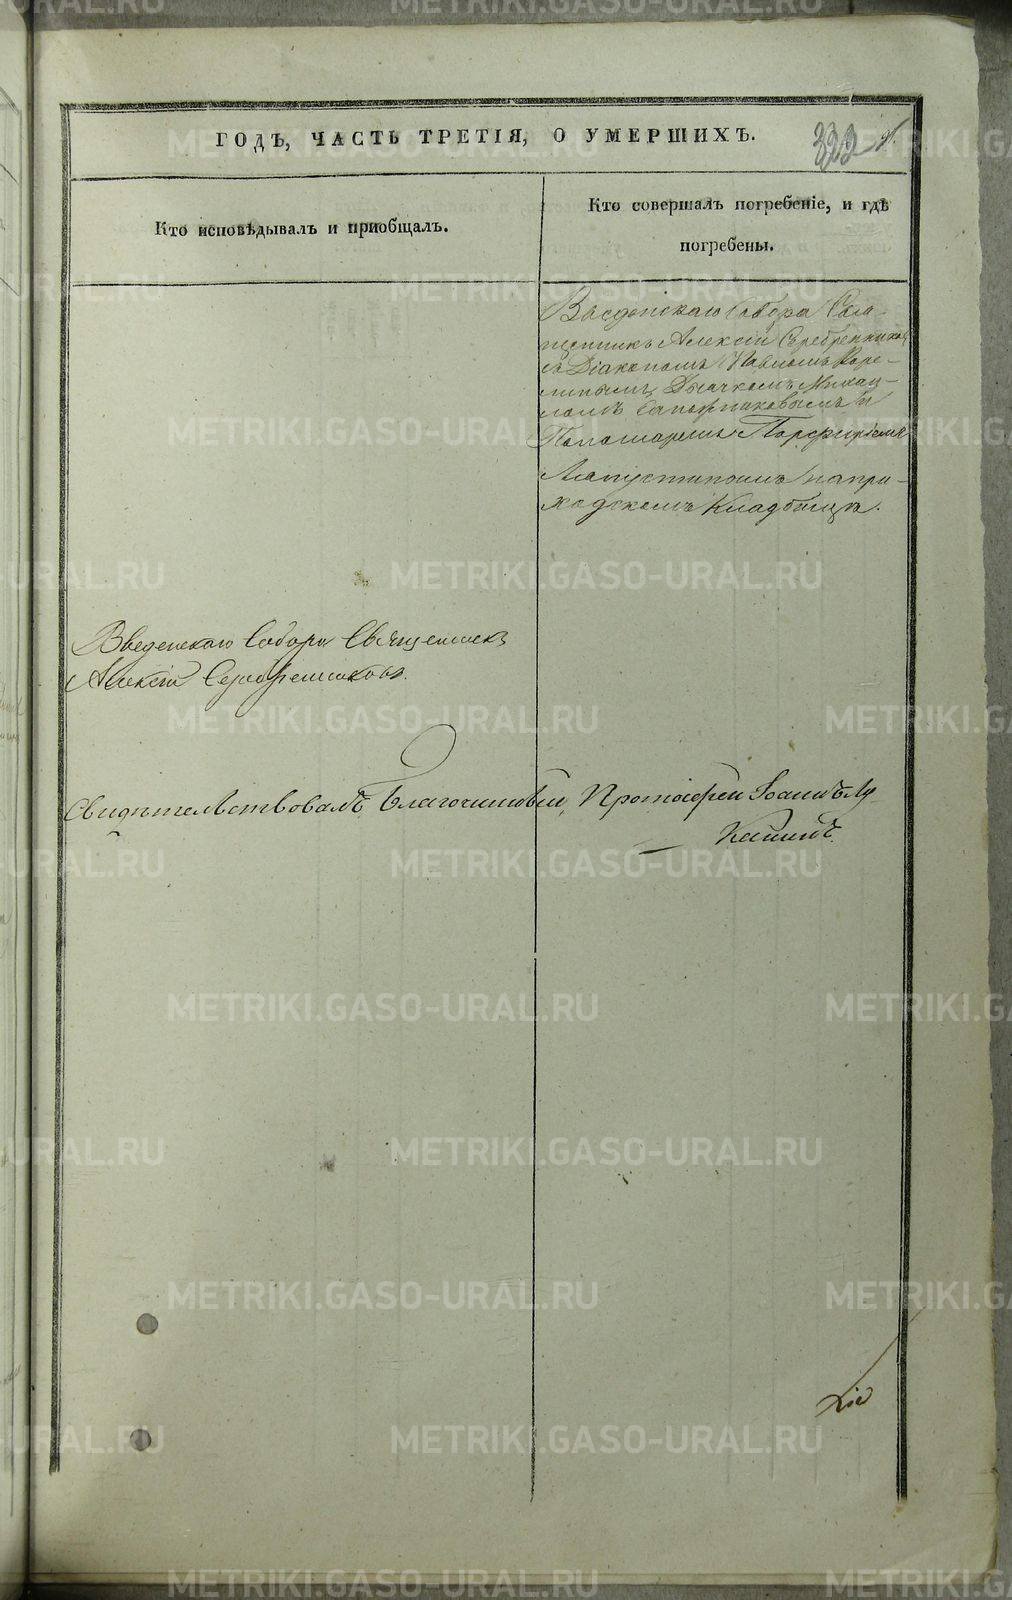 ГОДЪ, ЧАСТЬ ТРЕТІЯ, О УМЕРШИХЪ.
Кто исповѣдывалъ и пріобщалъ.
Кто совершалъ погребеніе, и гдѣ
погребены.
Введенскаго Собора Свя-
щенникъ Алексій Серебренниковъ
съ Діакономъ
Дьячкомъ Михаи-
ломъ Сапожниковымъ и
Пономаремъ Порфиріемъ
Лапустинымъ на при-
ходскомъ кладбищѣ.
Введенскаго Собора Священникъ
Алексій Серебренниковъ.
Свидѣтельствовалъ Благочинный, Протоіерей Іоаннъ Лу
канинъ.
METRIKI.GASO-URAL.RU